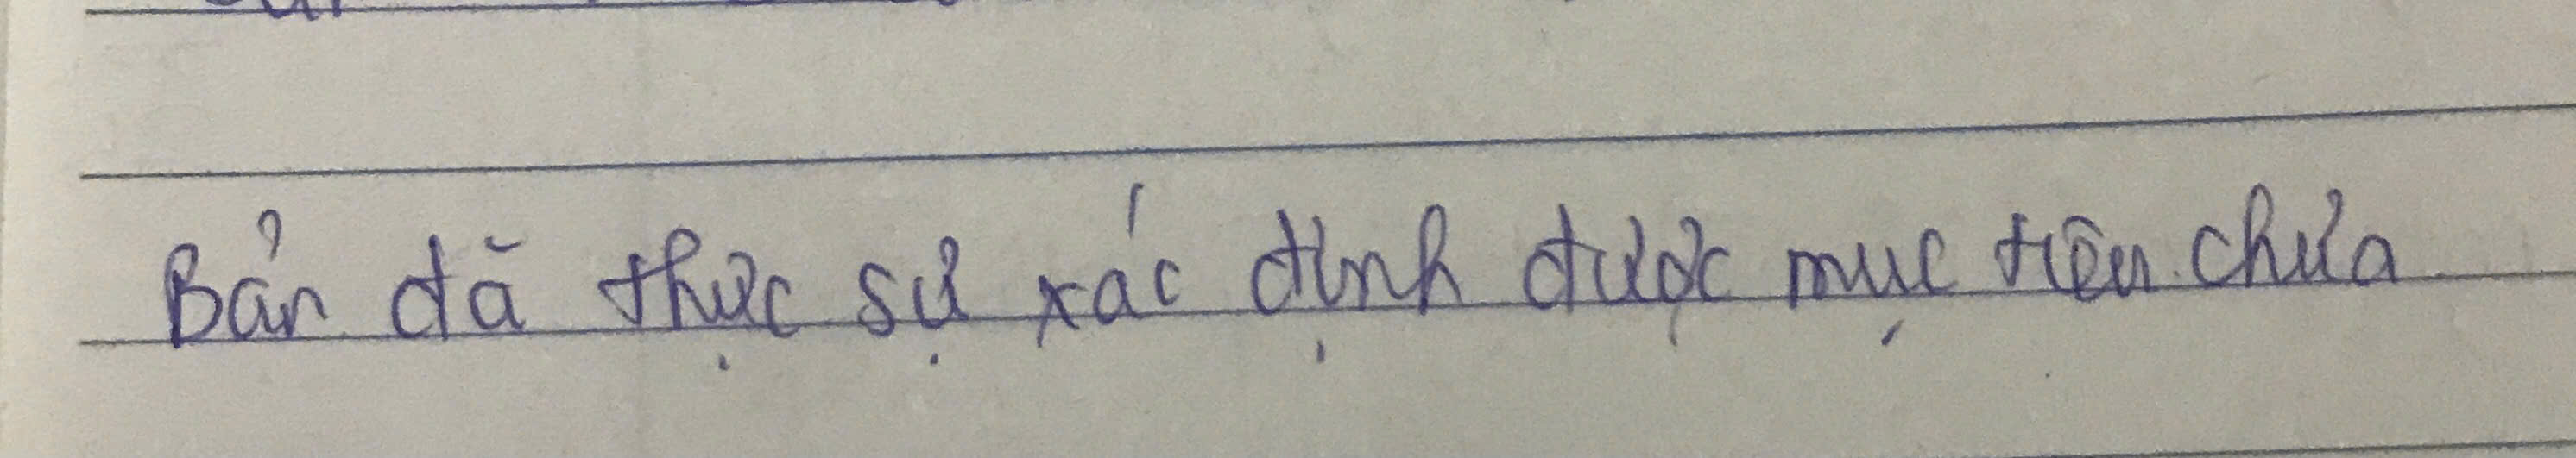 Bản đã thực sự xác định được mục tiêu chưa